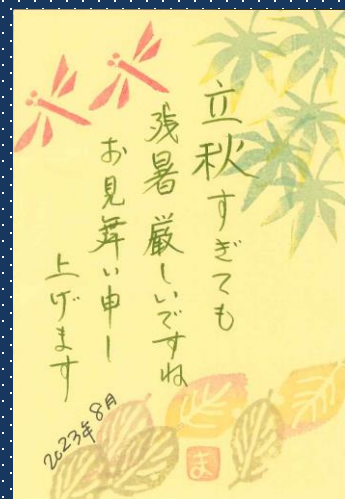 立秋すぎても
残暑厳しいですね
お見舞い申し
上げます
2023年8月
ま